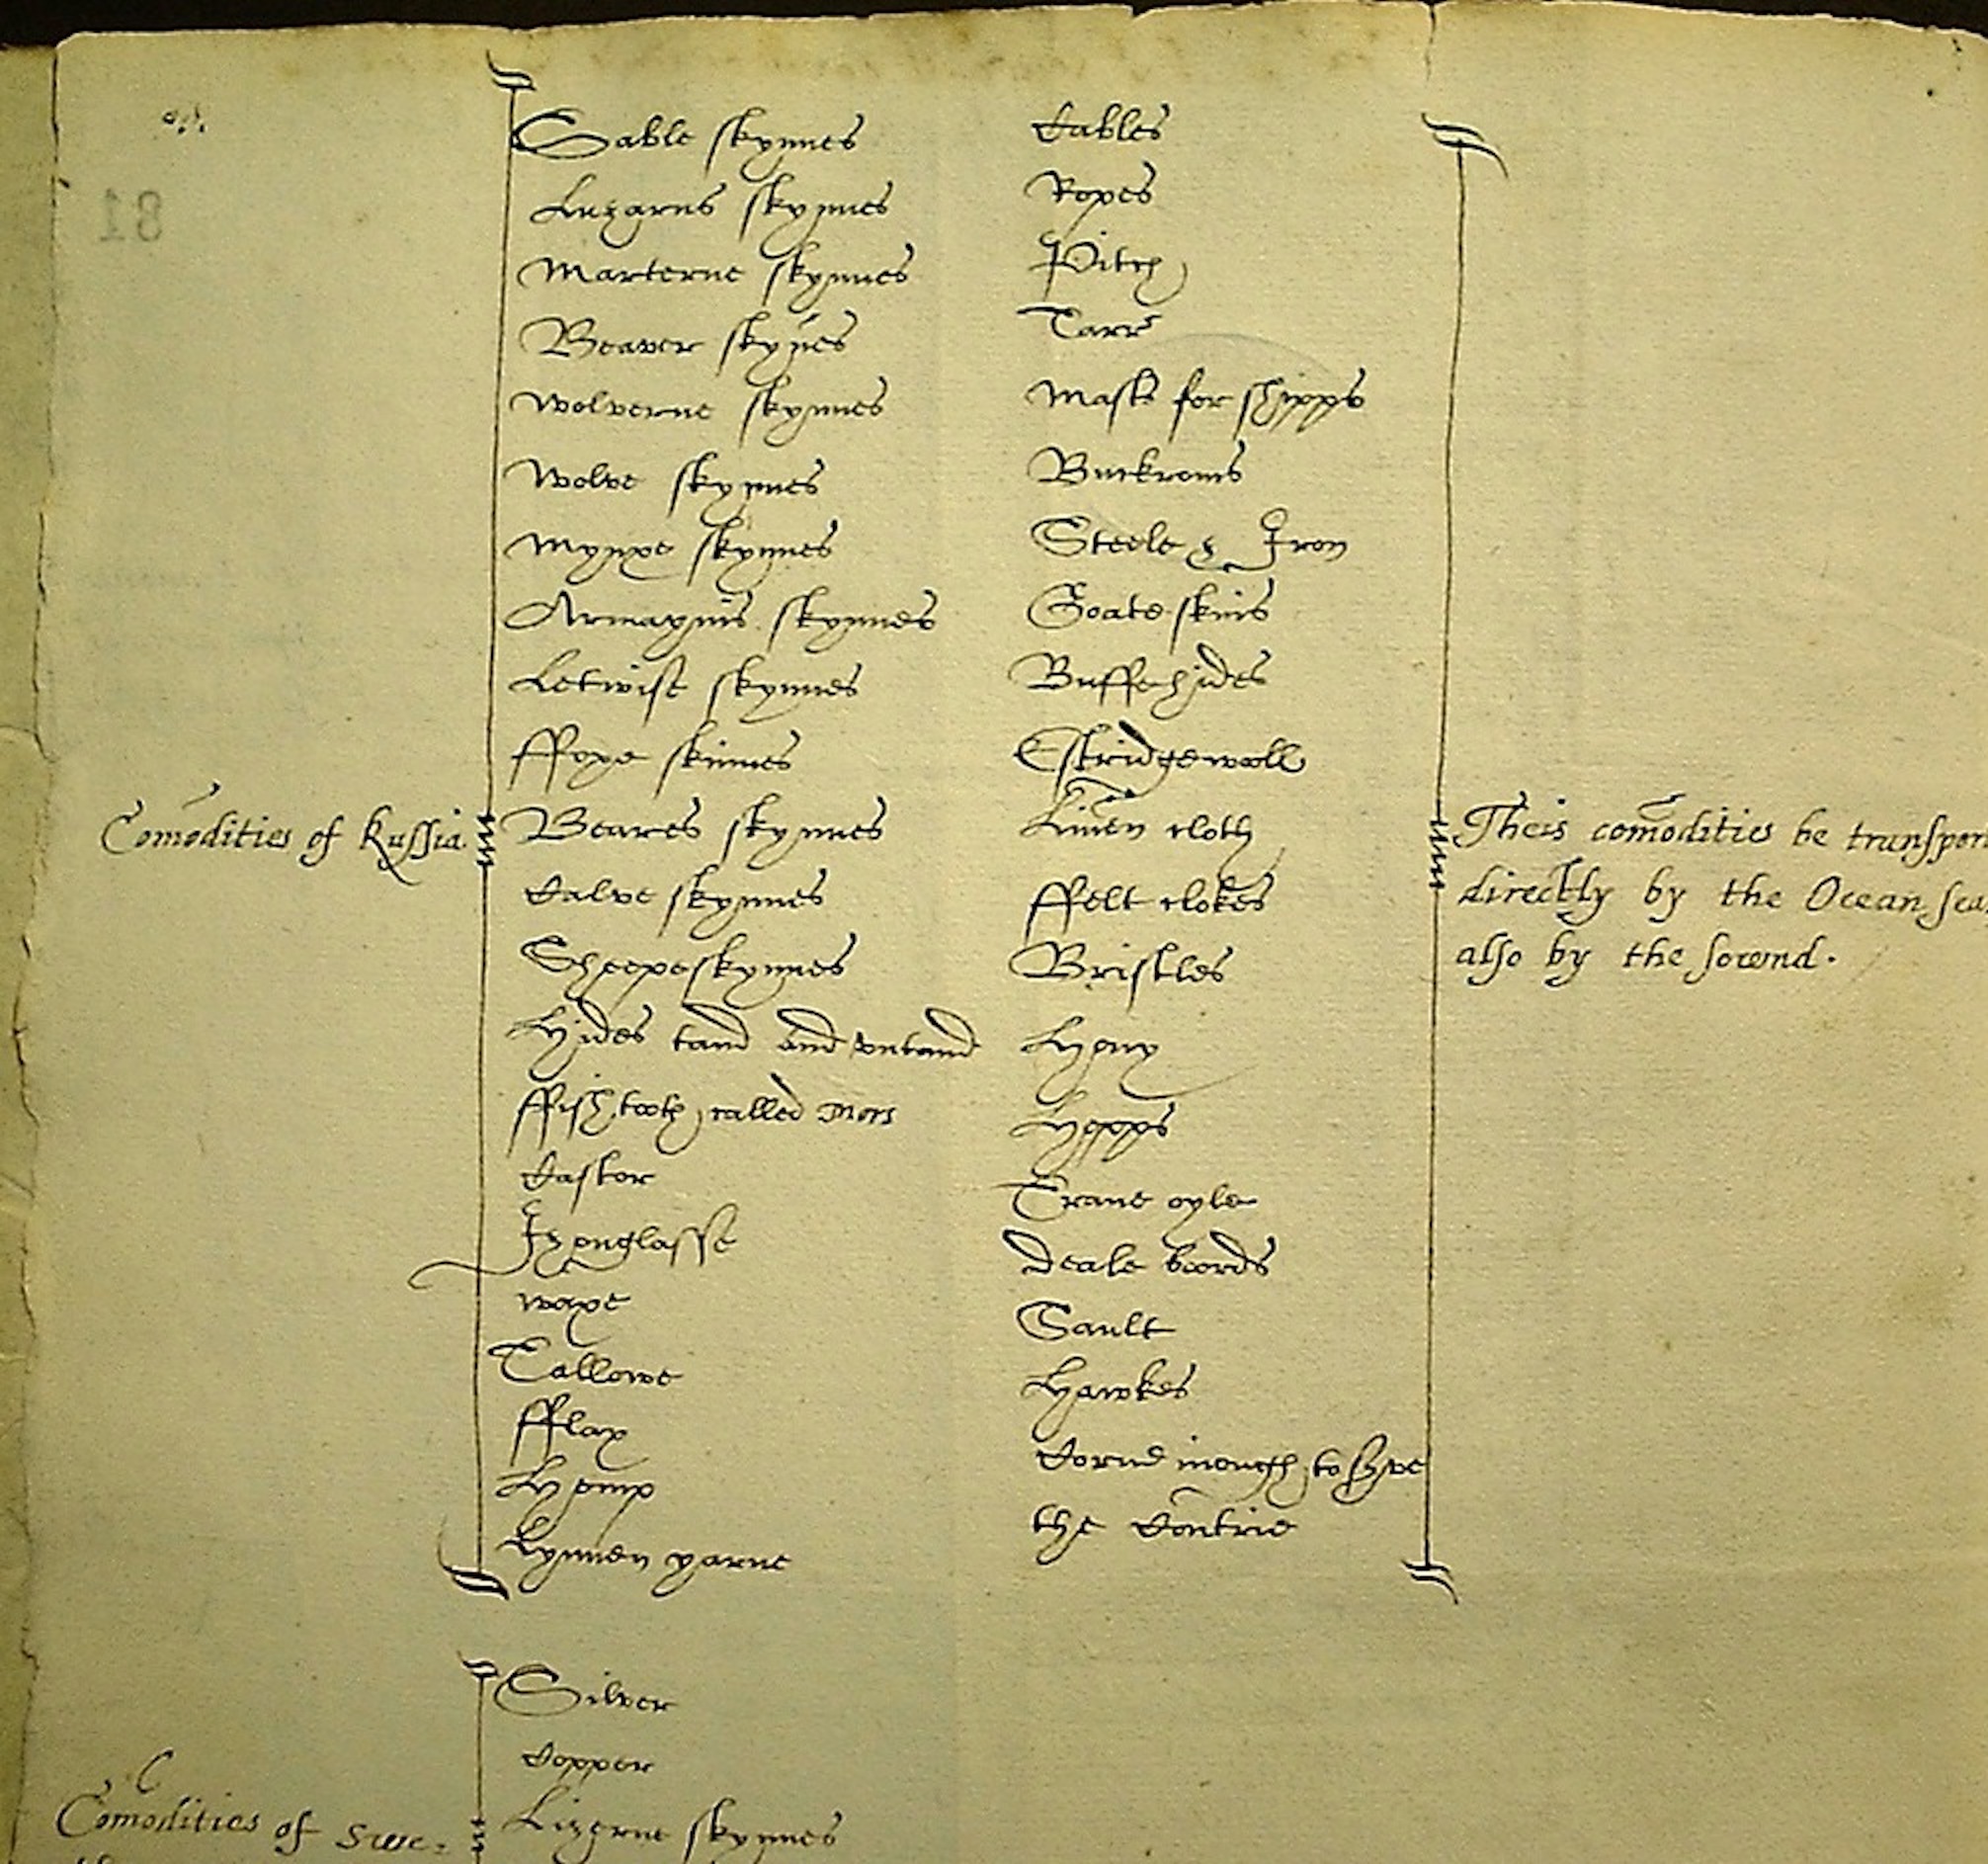 Sable skynnes
Luzarns skynnes
Marterne skynnes
Beaver skyñes
Wolverne skynnes
Wolve skynnes
Mynxe skynnes
Armaynis skynnes
Letwise skynnes
ffoxe skinnes
Comodities of Russia.
Beares skynnes
Calve skynnes
Sheepe skynnes
Hides tand and vntand
ffish tooth called Mors
Castor
Izenglasse
Waxe
Tallowe
fflax
Hemp
Lynnen yarne
Cables
Ropes
Pitch
Tarr
Mastes for shipps
Buckroms
Steele & Iron
Goate skins
Buffe hides
Estridge wooll
Linen cloth
ffelt clokes
Bristles
Hony
Hopps
Trane oyle
Deale boords
Sault
Hawkes
Corne inough to serve
the Contrie
Theis comodities be transpor
directly by the Ocean sea,
also by the sownd.
Comodities of Swe-
Silver
Copper
Lizerne skynnes
81